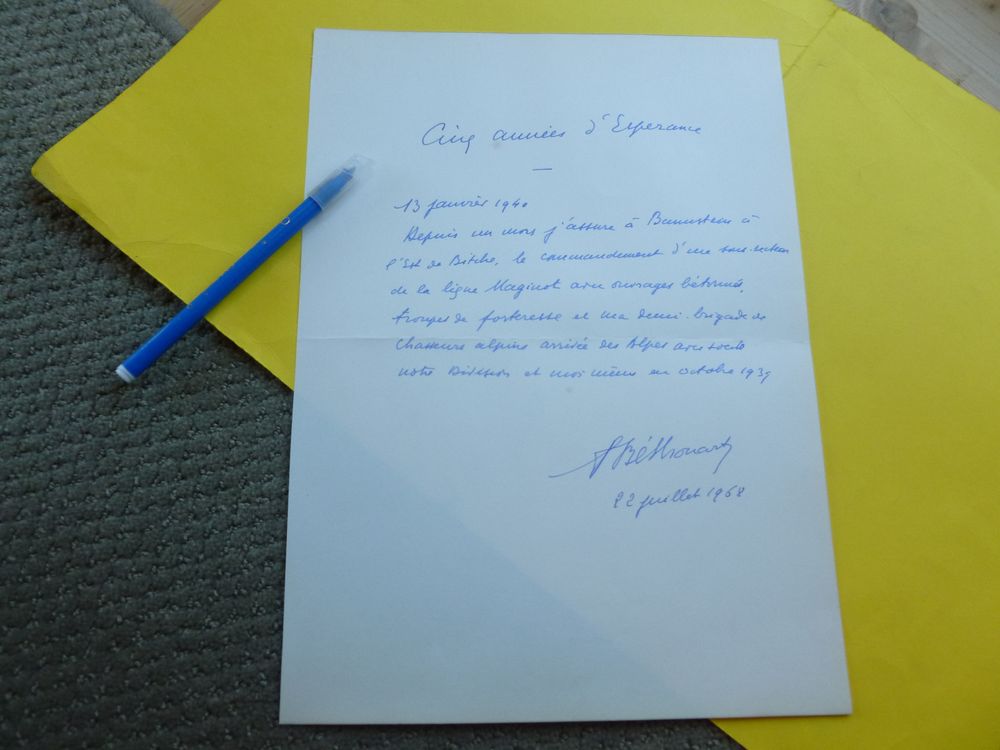 Cinq années d'Espérance
13 janvier 1940
Depuis un mois j'assure à Bannstein à
l'Est de Bitche, le commandement d'un sous-secteur
de la ligne Maginot avec ouvrages bétonnés,
troupes de forteresse et ma demi-brigade de
Chasseurs alpins arrivée des Alpes avec toute
notre Division et moi même en octobre 1939
Béthouart
22 juillet 1968